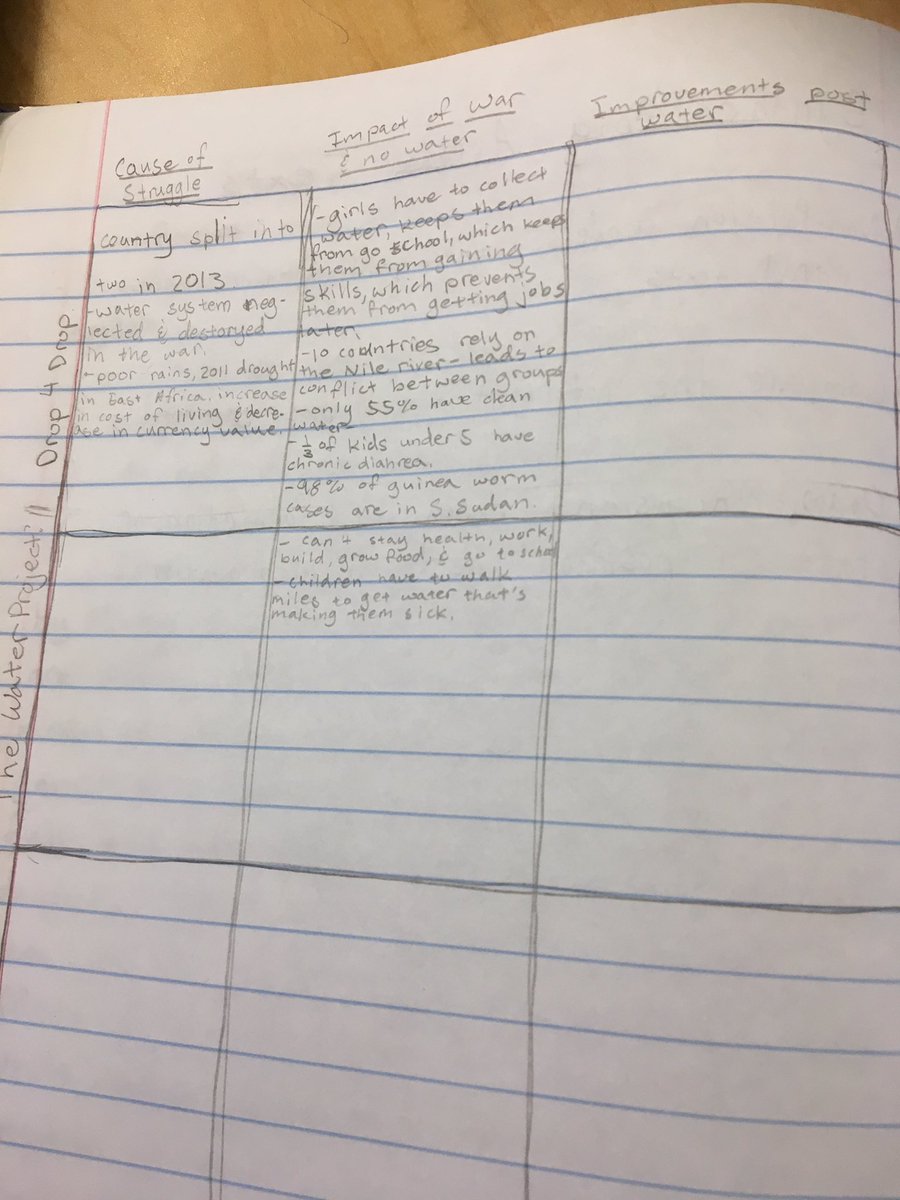 Cause of
Struggle
Impact of war
& no water
Improvements post
water
Drop 4 Drop
country split into
two in 2013.
-water system neg-
lected & destoryed
in the war.
-poor rains, 2011 drought
in East Africa. increase
in cost of living & decre-
ase in currency value.
-girls have to collect
water, keeps them
from go school, which keeps
them from gaining
skills, which prevents
them from getting jobs
later.
-10 countries rely on
the Nile river- leads to
conflict between groups
-only 55% have clean
water
-1/3 of kids under 5 have
chronic diahrea.
-98% of guinea worm
cases are in S. Sudan.
The Water Project:
- can't stay health, work,
build, grow food, & go to school
-children have to walk
miles to get water that's
making them sick.